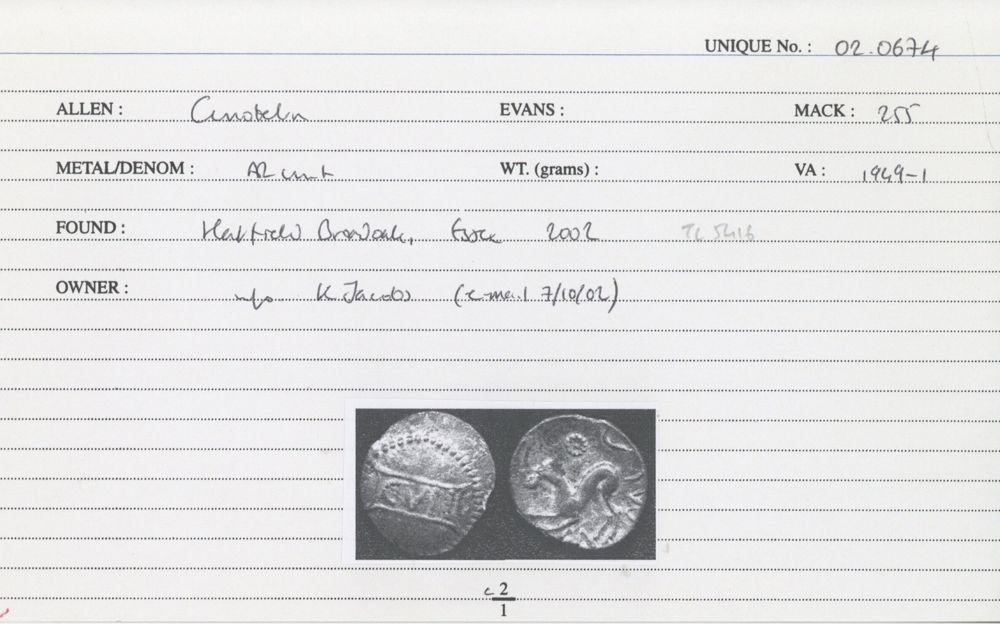 UNIQUE No. : 02.0674
ALLEN : Cunobelin EVANS : MACK : 255
METAL/DENOM : AR unit WT. (grams) : VA : 1949-1
FOUND : Hatfield Broadoak, Essex 2002 TL 5416
OWNER : K Jacobs (e-mail 7/10/02)
CVN
c 2
1